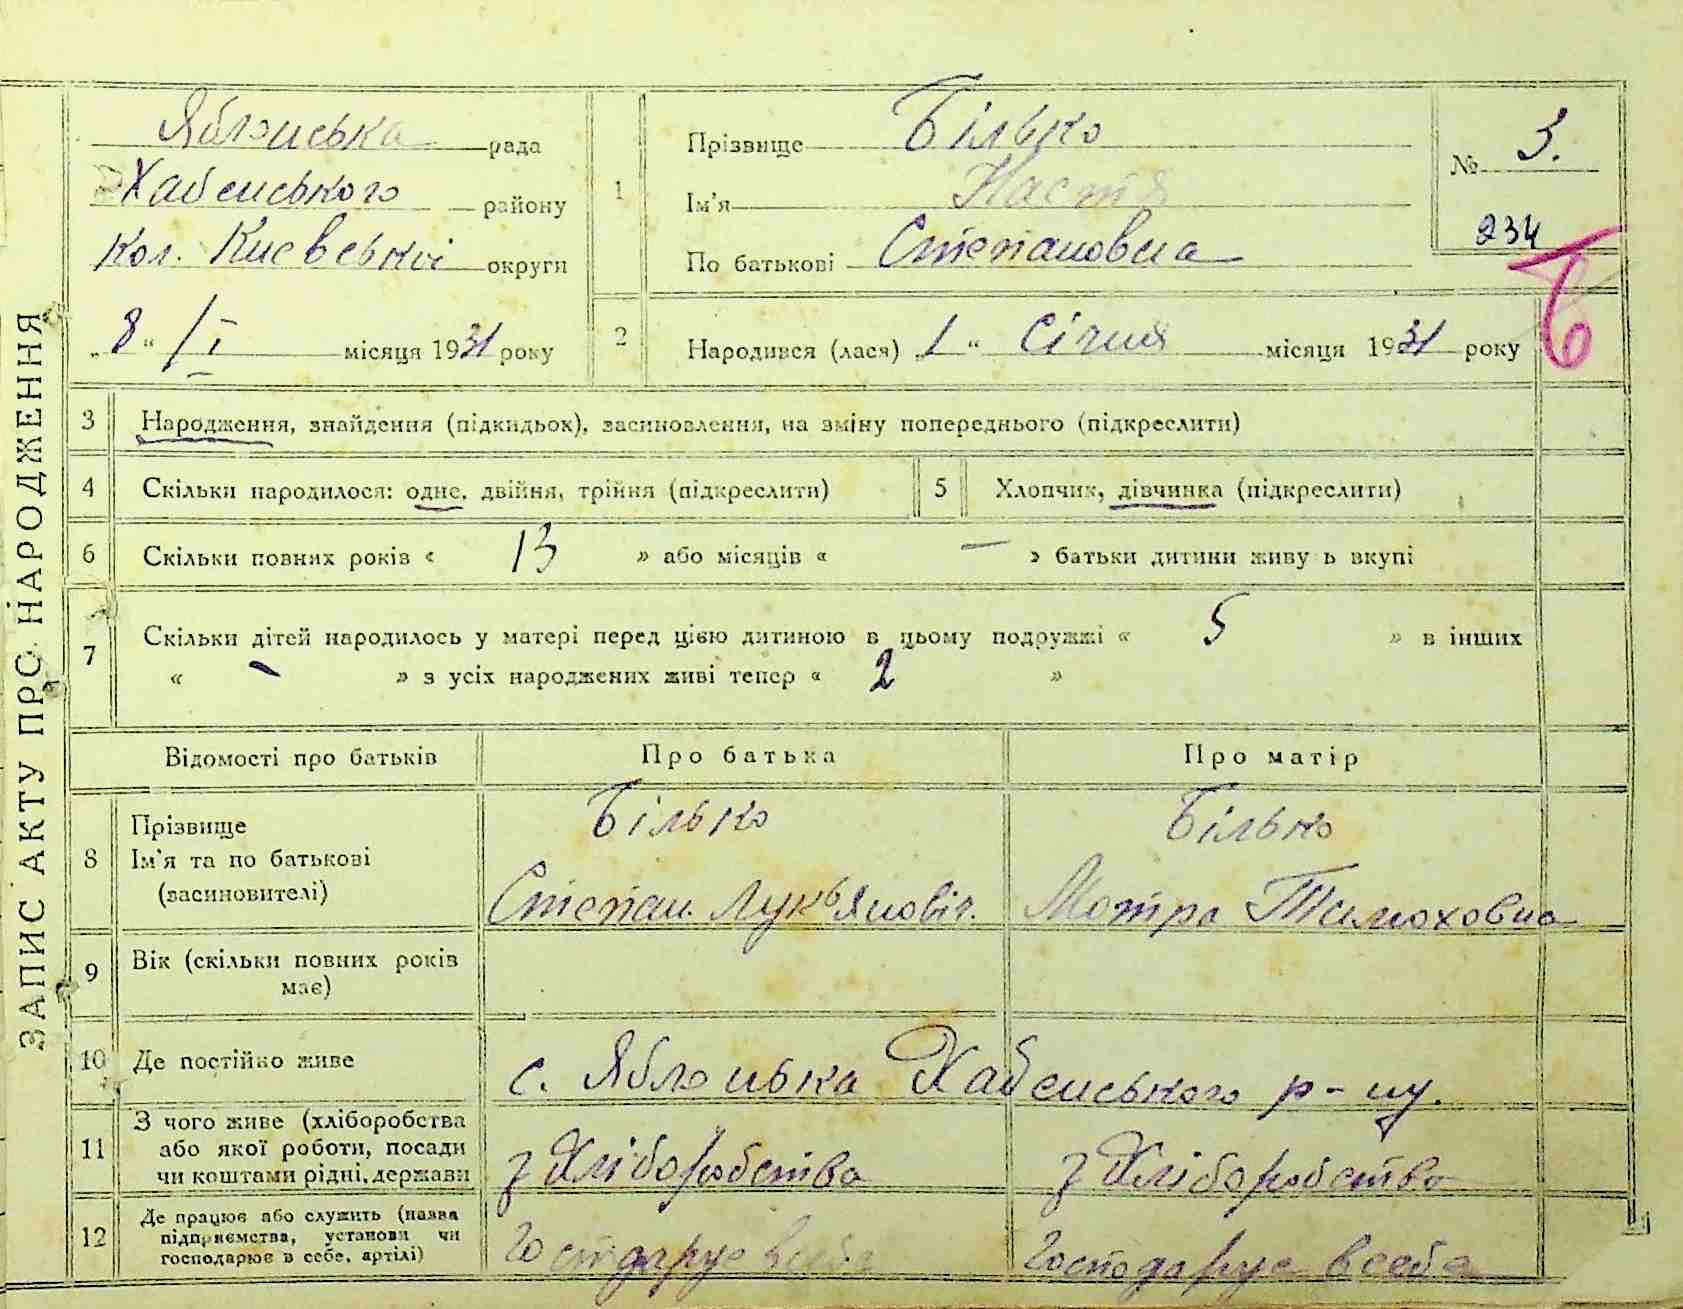 ЗАПИС АКТУ ПРО НАРОДЖЕННЯ
Яблонська рада
Хабенського району
Кол. Киевськоі округи
„8“ /I місяця 1931 року
1
Прізвище Білько
Ім'я Настя
По батькові Степановна
№ 3.
234
2
Народився (лася) „1“ Січня місяця 1931 року
3 Народження, знайдення (підкидьок), засиновлення, на зміну попереднього (підкреслити)
4 Скільки народилося: одне, двійня, трійня (підкреслити)
5 Хлопчик, дівчинка (підкреслити)
6 Скільки повних років « 13 » або місяців « — » батьки дитини живу ь вкупі
7 Скільки дітей народилось у матері перед цією дитиною в цьому подружжі « 5 » в інших
« - » з усіх народжених живі тепер « 2 »
Відомості про батьків Про батька Про матір
8 Прізвище Білько Білько
Ім'я та по батькові
(засиновителі) Степан Лукьяновіч. Мотра Тимоховна
9 Вік (скільки повних років
має)
10 Де постійно живе с. Яблонька Хабенського р-ну.
11 З чого живе (хліборобства
або якої роботи, посади
чи коштами рідні, держави з Хліборобства з Хліборобства
12 Де працює або служить (назва
підприємства, установи чи
господарює в себе, артілі) Господарує всебе Господарує всебе